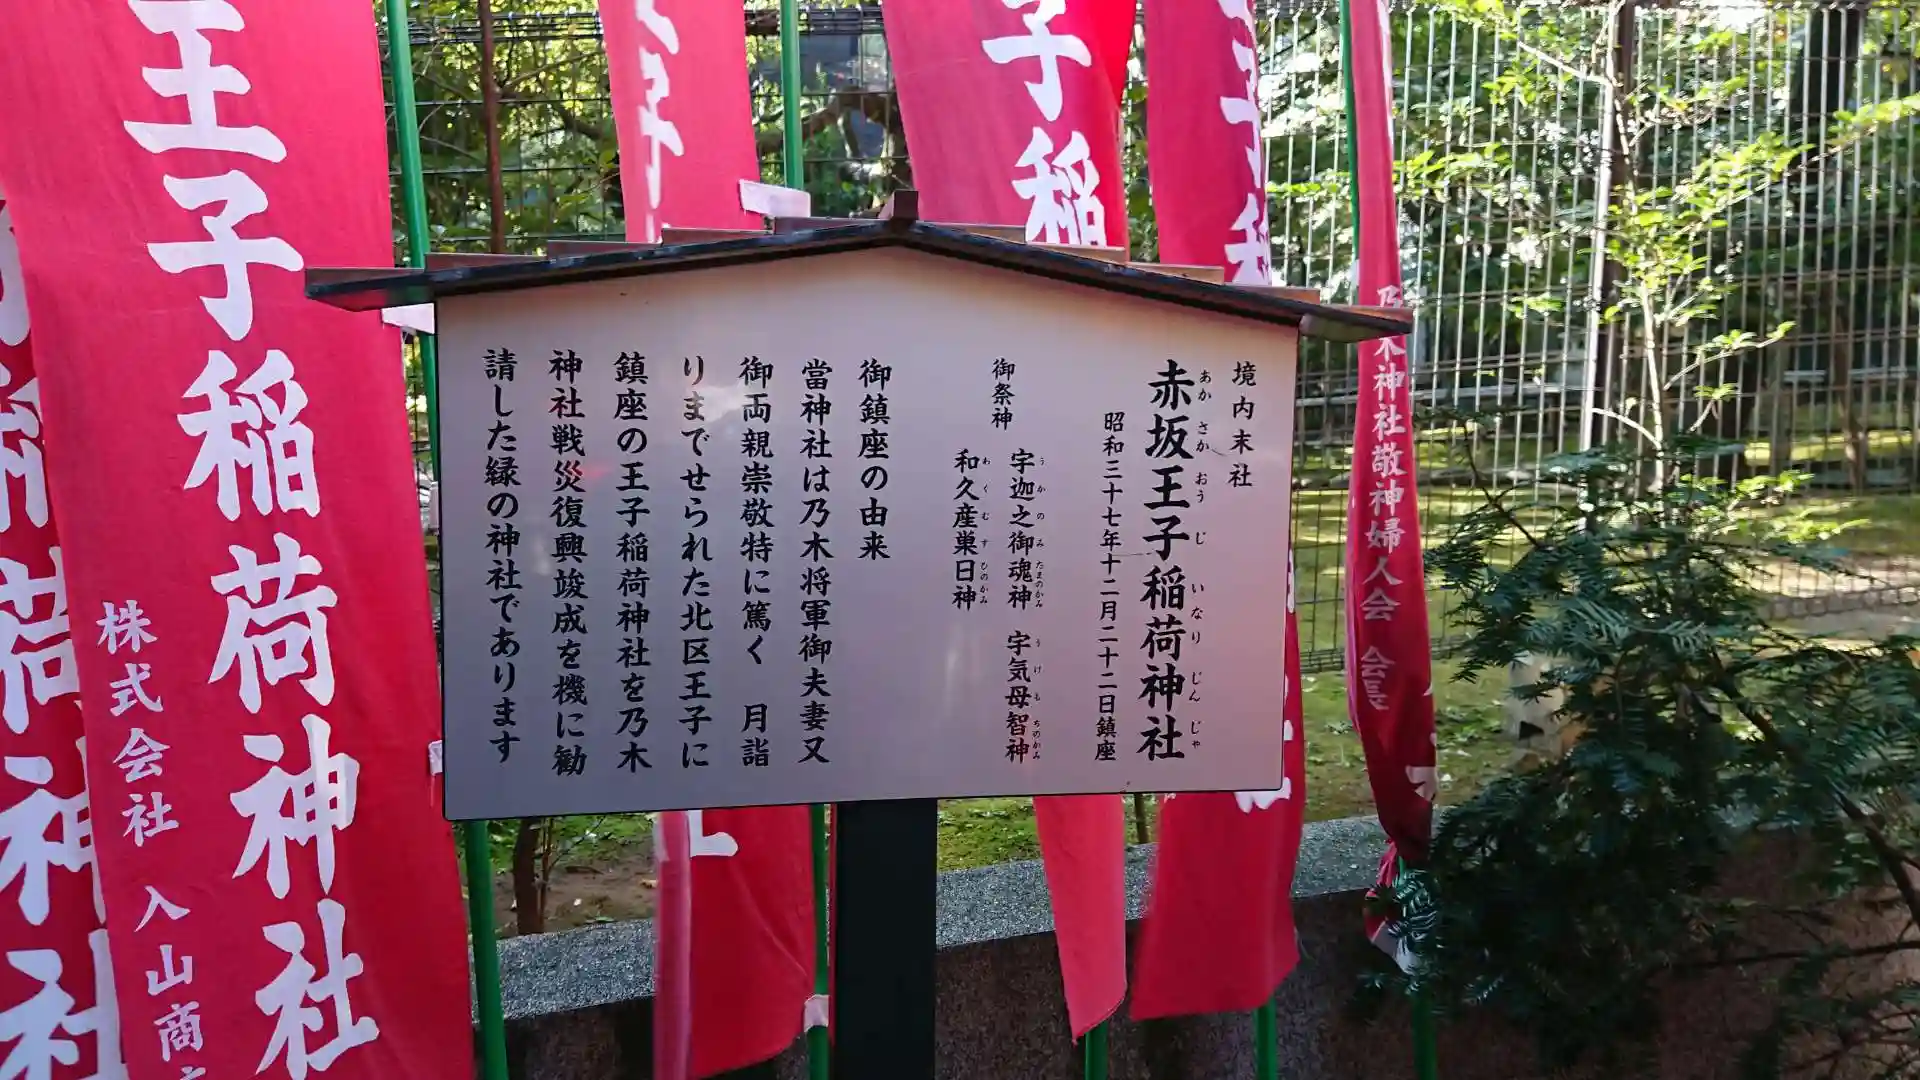 境内末社
赤坂王子稲荷神社
あかさかおうじいなりじんじゃ
昭和三十七年十二月二十二日鎮座
御祭神
宇迦之御魂神 宇気母智神
うかのみたまのかみ うけもちのかみ
和久産巣日神
わくむすひのかみ
御鎮座の由来
當神社は乃木将軍御夫妻又
御両親崇敬特に篤く 月詣
りまでせられた北区王子に
鎮座の王子稲荷神社を乃木
神社戦災復興竣成を機に勧
請した縁の神社であります
王子稲荷神社
株式会社 入山商
稲荷神社
子
子稲
王子稲
木神社敬神婦人会 会長